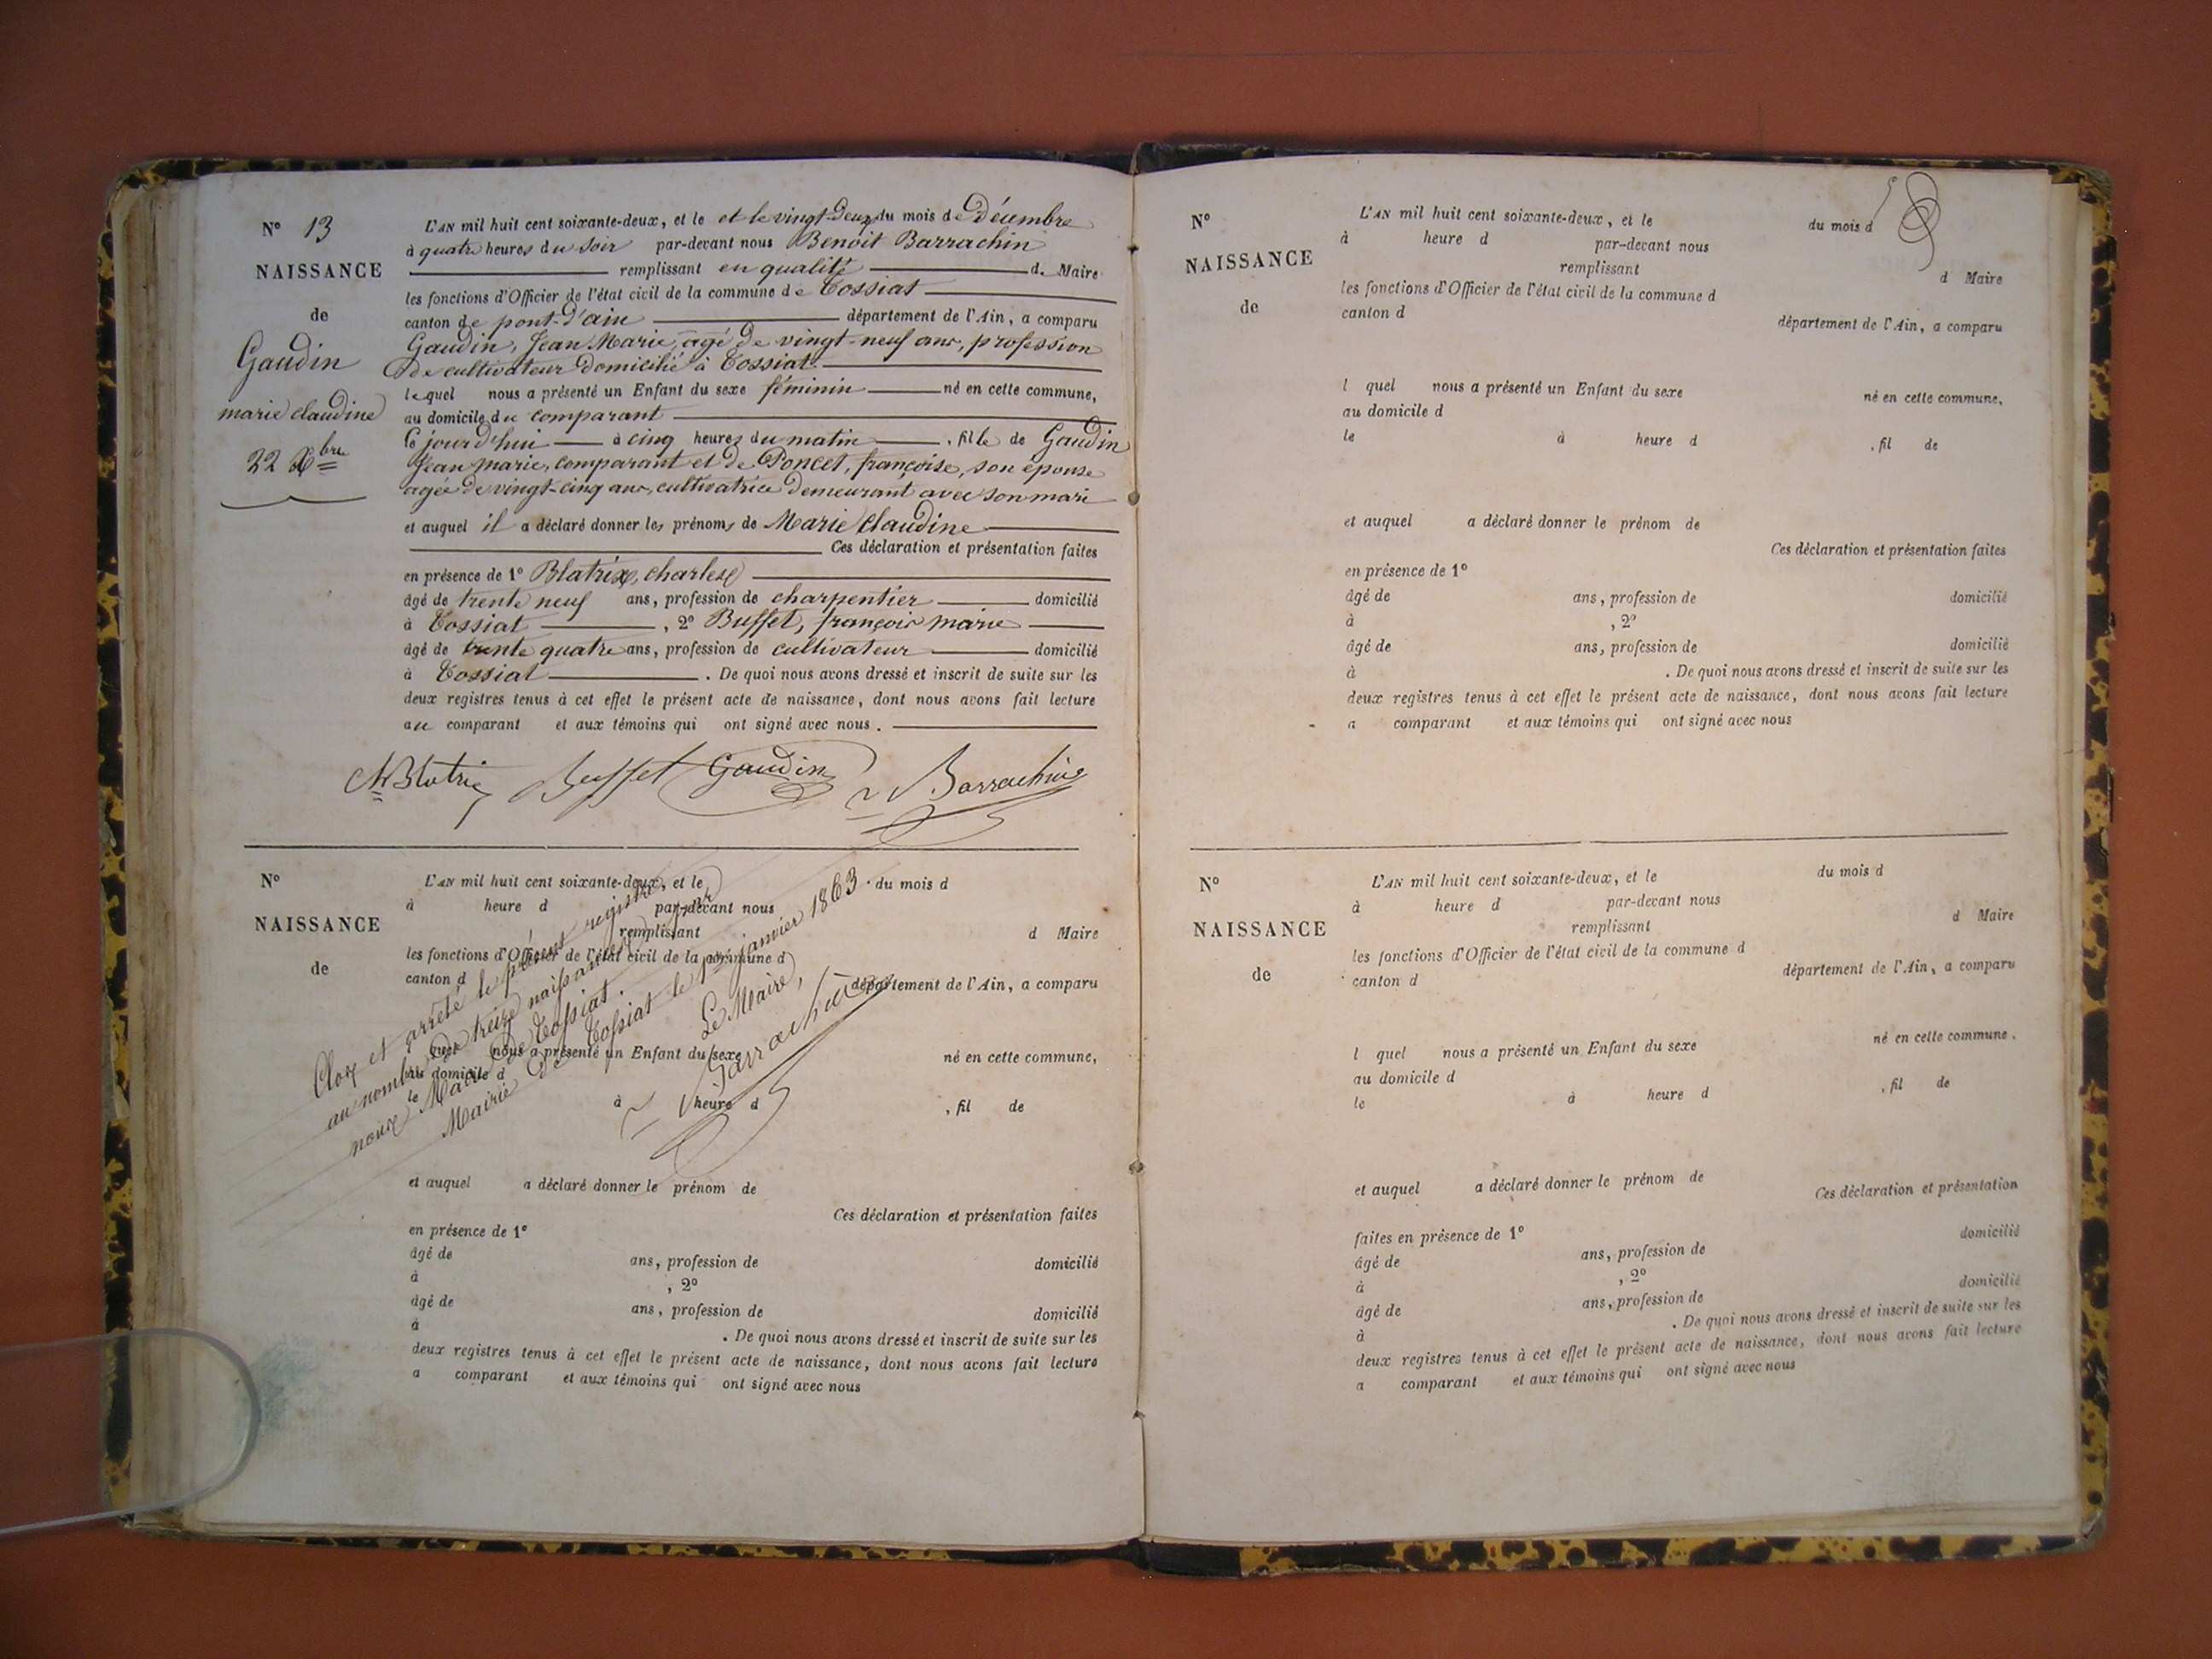 N° 13
NAISSANCE
de
Gaudin
marie claudine
22 Xbre
L'AN mil huit cent soixante-deux, et le et le vingt-deux du mois de Décembre
à quatre heures du soir par-devant nous Benoit Barrachin
remplissant en qualité d. Maire
les fonctions d'Officier de l'état civil de la commune de Tossiat
canton de pont-d'ain département de l'Ain, a comparu
Gaudin, Jean Marie, agé de vingt-neuf ans, profession
de cultivateur domicilié à Tossiat
lequel nous a présenté un Enfant du sexe féminin né en cette commune,
au domicile du comparant
le jourd'hui à cinq heures du matin , fille de Gaudin
Jean marie, comparant et de Poncet, françoise, son épouse
agée de vingt-cinq ans, cultivatrice demeurant avec son mari
et auquel il a déclaré donner les prénoms de Marie claudine
Ces déclaration et présentation faites
en présence de 1° Blatrix, charles
âgé de trente neuf ans, profession de charpentier domicilié
à Tossiat , 2° Buffet, françois marie
âgé de trente quatre ans, profession de cultivateur domicilié
à Tossiat . De quoi nous avons dressé et inscrit de suite sur les
deux registres tenus à cet effet le présent acte de naissance, dont nous avons fait lecture
au comparant et aux témoins qui ont signé avec nous.
Buffet Gaudin Barrachin
N°
NAISSANCE
de
L'AN mil huit cent soixante-deux, et le du mois d
à heure d par-devant nous
remplissant d Maire
les fonctions d'Officier de l'état civil de la commune d
canton d département de l'Ain, a comparu
quel nous a présenté un Enfant du sexe né en cette commune,
au domicile d
le à heure d , fil de
et auquel a déclaré donner le prénom de
Ces déclaration et présentation faites
en présence de 1°
âgé de ans, profession de domicilié
à , 2°
âgé de ans, profession de domicilié
à . De quoi nous avons dressé et inscrit de suite sur les
deux registres tenus à cet effet le présent acte de naissance, dont nous avons fait lecture
a comparant et aux témoins qui ont signé avec nous
Clos et arrêté le présent registre
au nombre de treize naissances par
nous Maire de Tossiat.
Mairie de Tossiat le 1er janvier 1863.
Le Maire,
Barrachin
N°
NAISSANCE
de
L'AN mil huit cent soixante-deux, et le du mois d
à heure d par-devant nous
remplissant d Maire
les fonctions d'Officier de l'état civil de la commune d
canton d département de l'Ain, a comparu
l quel nous a présenté un Enfant du sexe né en cette commune,
au domicile d
le à heure d , fil de
et auquel a déclaré donner le prénom de
Ces déclaration et présentation faites
en présence de 1°
âgé de ans, profession de domicilié
à , 2°
âgé de ans, profession de domicilié
à . De quoi nous avons dressé et inscrit de suite sur les
deux registres tenus à cet effet le présent acte de naissance, dont nous avons fait lecture
a comparant et aux témoins qui ont signé avec nous
N°
NAISSANCE
de
L'AN mil huit cent soixante-deux, et le du mois d
à heure d par-devant nous
remplissant d Maire
les fonctions d'Officier de l'état civil de la commune d
canton d département de l'Ain, a comparu
l quel nous a présenté un Enfant du sexe né en cette commune,
au domicile d
le à heure d , fil de
et auquel a déclaré donner le prénom de
Ces déclaration et présentation
faites en présence de 1° domicilié
âgé de ans, profession de
à , 2° domicilié
âgé de ans, profession de
à . De quoi nous avons dressé et inscrit de suite sur les
deux registres tenus à cet effet le présent acte de naissance, dont nous avons fait lecture
a comparant et aux témoins qui ont signé avec nous